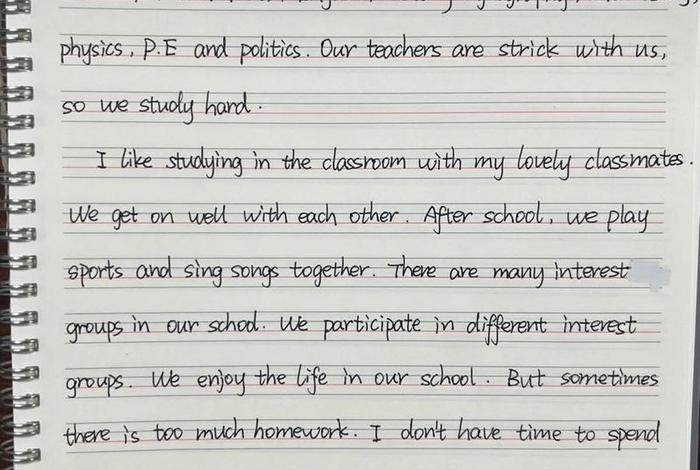 physics, P.E and politics. Our teachers are strick with us,
so we study hard.
I like studying in the classroom with my lovely classmates.
We get on well with each other. After school, we play
sports and sing songs together. There are many interest
groups in our school. We participate in different interest
groups. We enjoy the life in our school. But sometimes
there is too much homework. I don't have time to spend